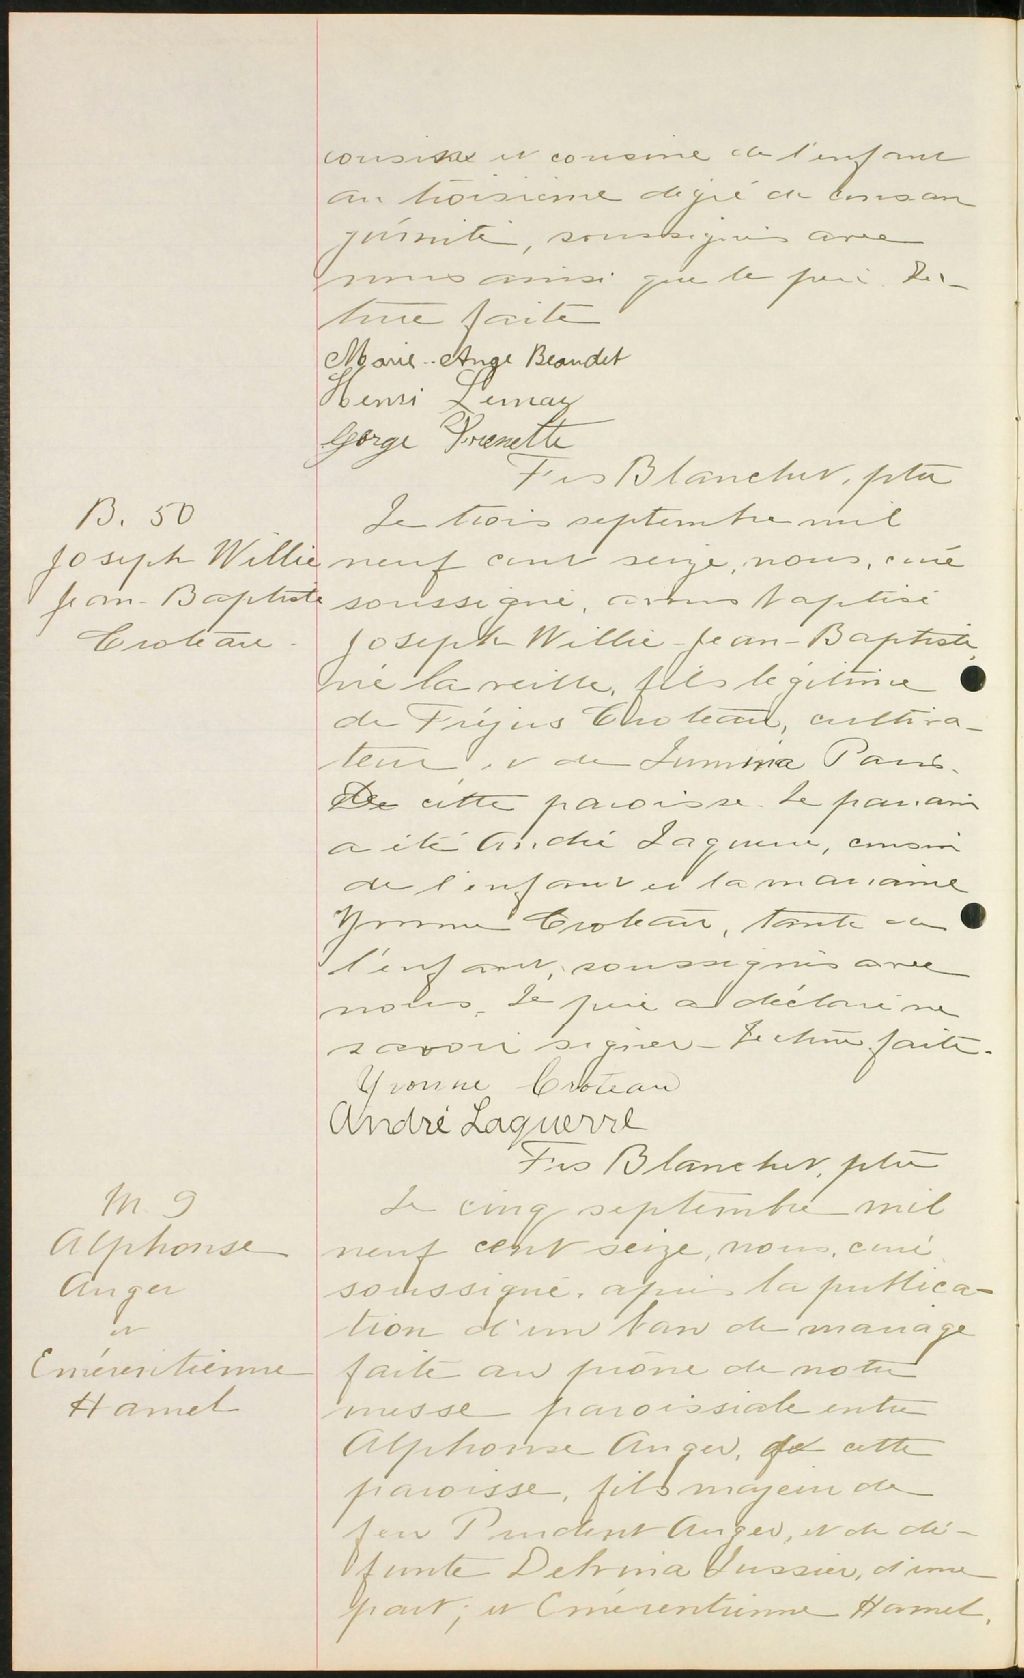 cousin et cousine de l'enfant
au troisième degré de consan
guinité, soussignés avec
nous ainsi que le père. Lec-
ture faite
Marie-Ange Beaudet
Henri Lemay
George Prenette
Frs Blanchet, ptre
B. 50
Joseph Willie
Jean-Baptiste
Croteau.
Le trois septembre mil
neuf cent seize, nous, curé
soussigné, avons baptisé
Joseph Willie-Jean-Baptiste,
né la veille, fils légitime
de Fréjus Croteau, cultiva-
teur, et de Lumina Paris.
De cette paroisse. Le parrain
a été André Laguerre, cousin
de l'enfant et la marraine
Yvonne Croteau, tante de
l'enfant, soussignés avec
nous. Le père a déclaré ne
savoir signer - Lecture faite.
Yvonne Croteau
André Laguerre
Frs Blanchet, ptre
M. 9
Alphonse
Anger
et
Emérentienne
Hamel
Le cinq septembre mil
neuf cent seize, nous, curé
soussigné, après la publica-
tion d'un ban de mariage
faite au prône de notre
messe paroissiale entre
Alphonse Anger, de cette
paroisse, fils majeur de
feu Prudent Anger, et de dé-
funte Delvina Lussier, d'une
part; et Emérentienne Hamel,